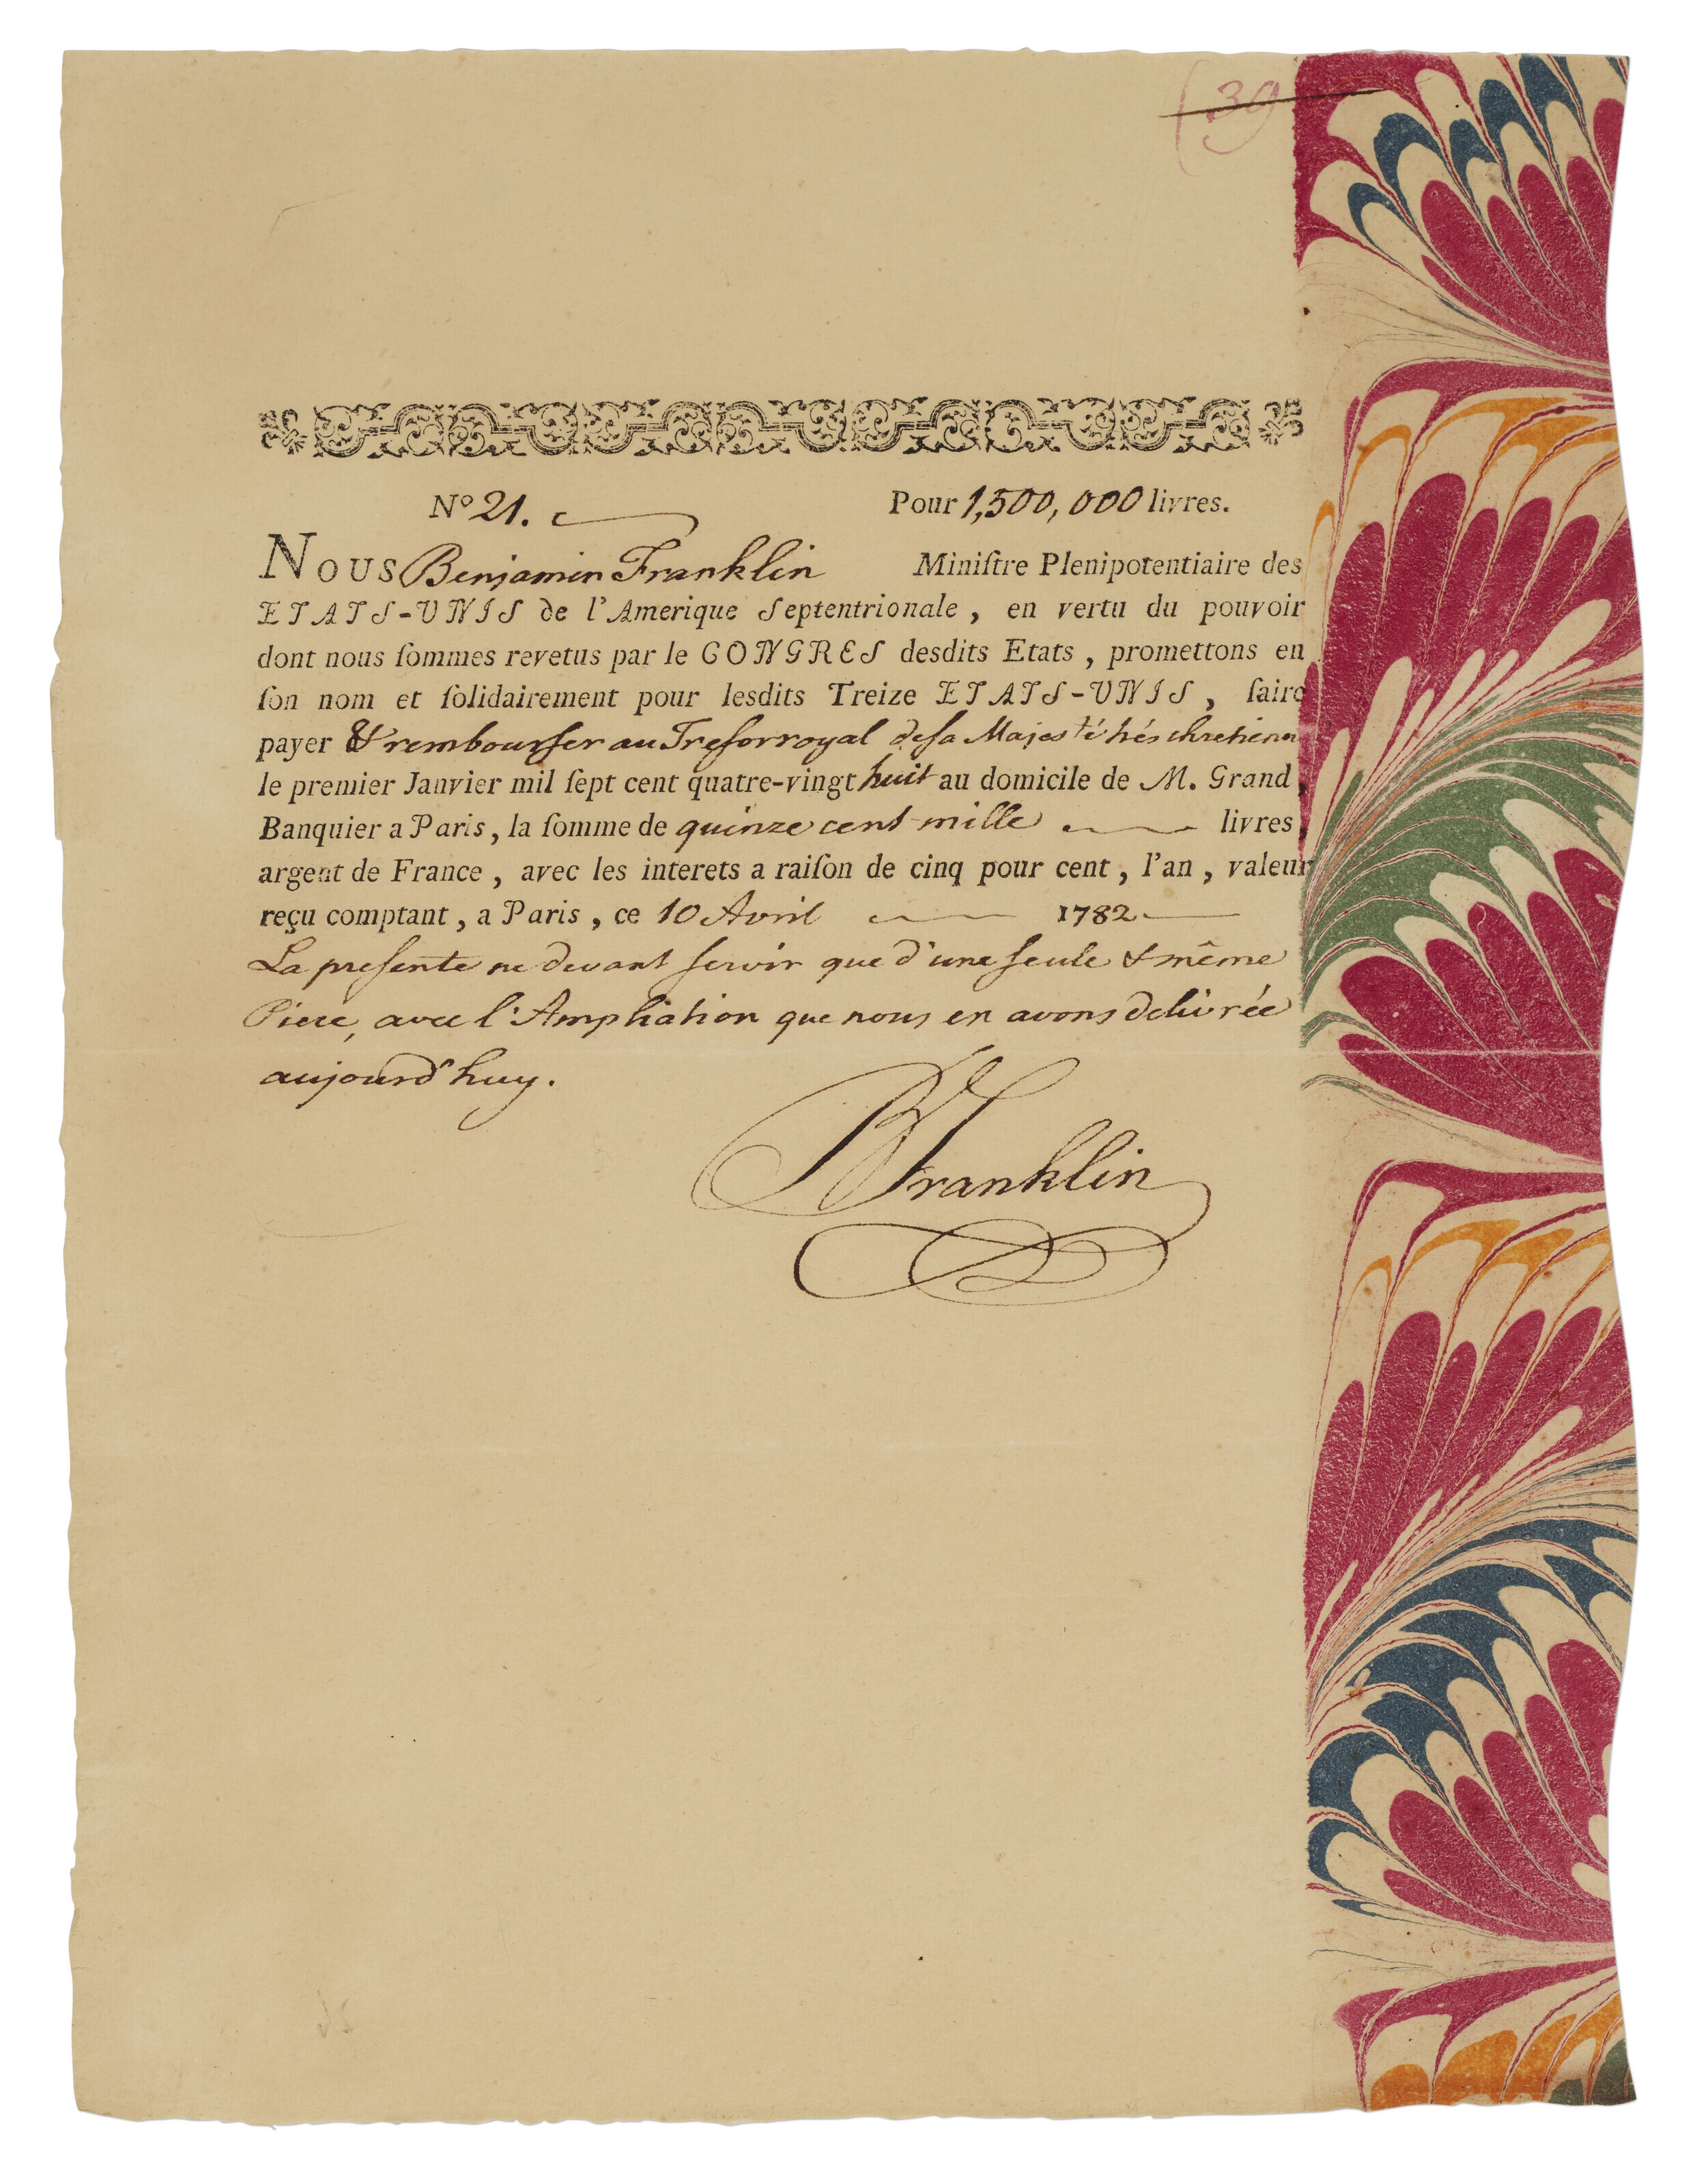 (39)
Nº 21. Pour 1,500,000 livres.
NOUS Benjamin Franklin Miniſtre Plenipotentiaire des
ETATS-UNIS de l'Amerique Septentrionale, en vertu du pouvoir
dont nous ſommes revetus par le CONGRES desdits Etats, promettons en
ſon nom et ſolidairement pour lesdits Treize ETATS-UNIS, faire
payer & rembourſer au Treſor royal de ſa Majesté trés chretienne
le premier Janvier mil ſept cent quatre-vingt huit au domicile de M. Grand,
Banquier a Paris, la ſomme de quinze cent mille livres,
argent de France, avec les interets a raiſon de cinq pour cent, l'an, valeur
reçu comptant, a Paris, ce 10 Avril 1782
La preſente ne devant ſervir que d'une ſeule & même
Piece, avec l'Ampliation que nous en avons delivrée
aujourd'huy.
B Franklin